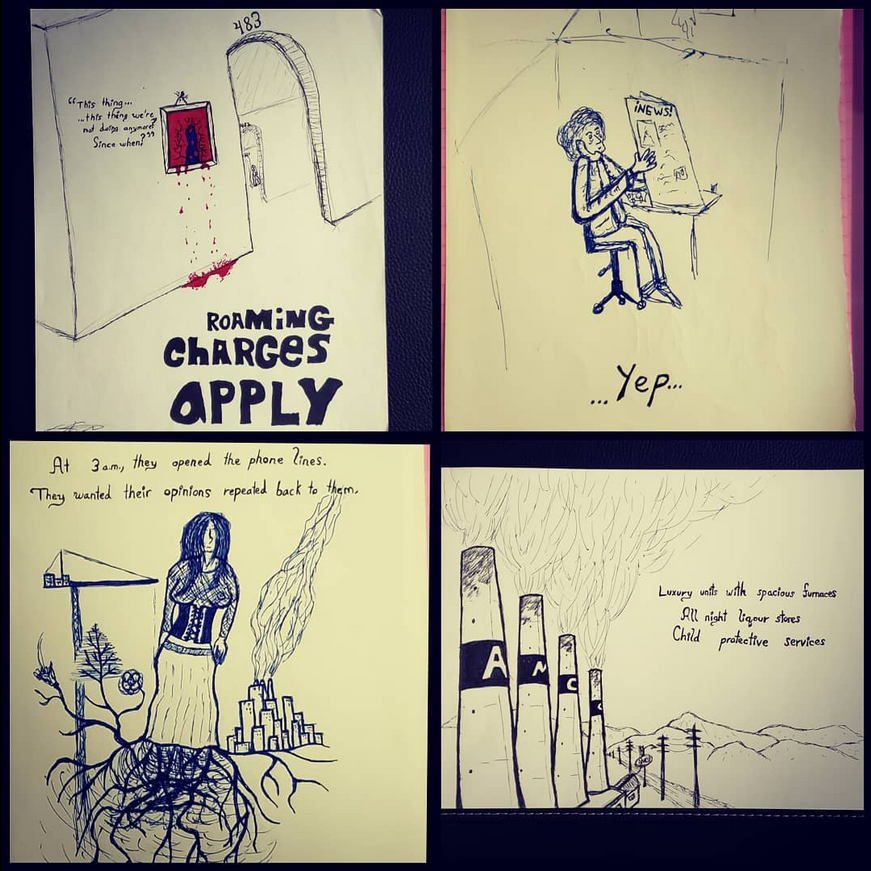 483
“This thing...
...this thing we're
not doing anymore?
Since when?”
ROAMING
CHARGES
APPLY
¡NEWS!
...Yep...
At 3 a.m., they opened the phone lines.
They wanted their opinions repeated back to them.
Luxury units with spacious furnaces
All night liqour stores
Child protective services
A
N
C